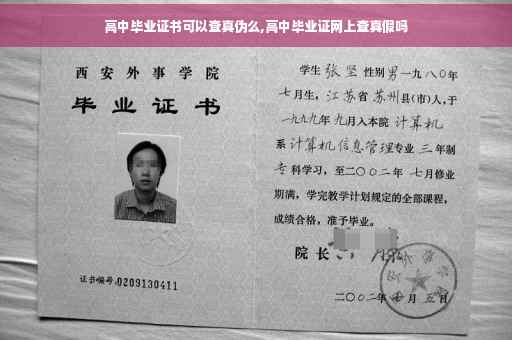 高中毕业证书可以查真伪么,高中毕业证网上查真假吗
西安外事学院
毕业证书
证书编号:0209130411
学生 张坚 性别 男 一九八〇年
七月生, 江苏省 苏州 县(市)人,于
一九九九年 九月入本院 计算机
系 计算机信息管理 专业 三 年制
专科学习, 至二〇〇二年 七月修业
期满, 学完教学计划规定的全部课程,
成绩合格, 准予毕业。
院长
二〇〇二年 月 五日